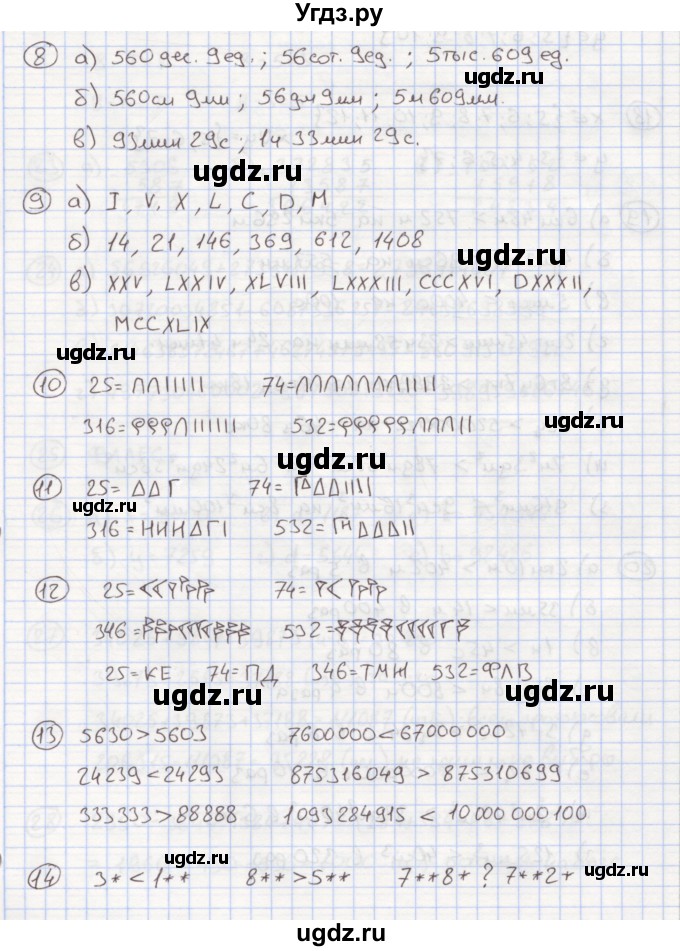 Угдз.ру
8 а) 560 дес. 9 ед. ; 56 сот. 9 ед. ; 5 тыс. 609 ед.
ugdz.ru
б) 560 см 9 мм ; 56 дм 9 мм ; 5 м 609 мм.
ugdz.ru
в) 93 мин 29 с ; 1 ч 33 мин 29 с.
ugdz.ru
9 а) I, V, X, L, C, D, M
б) 14, 21, 146, 369, 612, 1408
ugdz.ru
в) XXV, LXXIV, XLVIII, LXXXIII, CCCXVI, DXXXII,
MCCXLIX
ugdz.ru
10 25= ΛΛIIIII 74= ΛΛΛΛΛΛΛIIII
316= 532=
ugdz.ru
ugdz.ru
11 25= ΔΔΓ 74= ΔΔIIII
ugdz.ru
316= HHHΔΓI 532= ΔΔΔII
ugdz.ru
12 25= 74=
346= 532=
25=КЕ 74=ПД 346=ТМЖ 532=ФЛВ
ugdz.ru ugdz.ru
13 5630>5603 7600000<67000000
24239<24293 875316049 > 875310699
333333>88888 1093284915 < 10 000 000 100
ugdz.ru ugdz.ru
14 3*<1** 8**>5** 7**8* ? 7**2*
ugdz.ru ugdz.ru